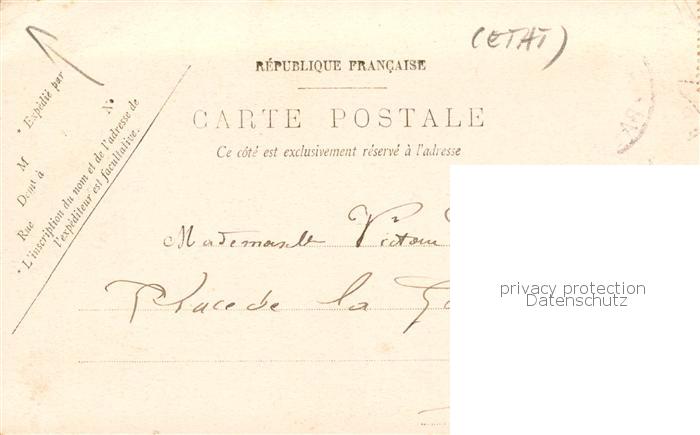 (ETAT)
RÉPUBLIQUE FRANÇAISE
CARTE POSTALE
Ce côté est exclusivement réservé à l'adresse
* Expédié par
M
Demt à
Rue N°
* L'inscription du nom et de l'adresse de
l'expéditeur est facultative.
Mademoiselle
Place de la
privacy protection
Datenschutz